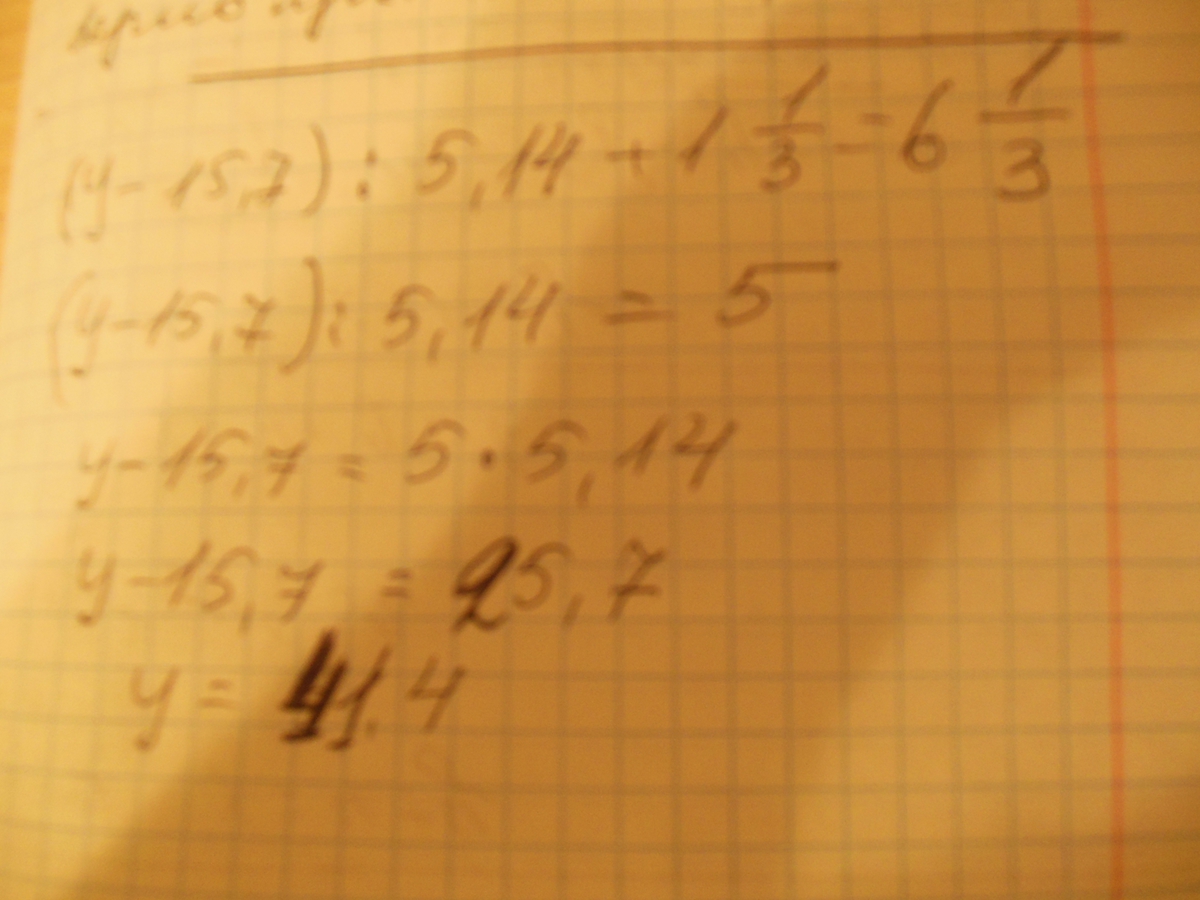 (y - 15,7) : 5,14 + 1 1/3 = 6 1/3
(y - 15,7) : 5,14 = 5
y - 15,7 = 5 · 5,14
y - 15,7 = 25,7
y = 41.4